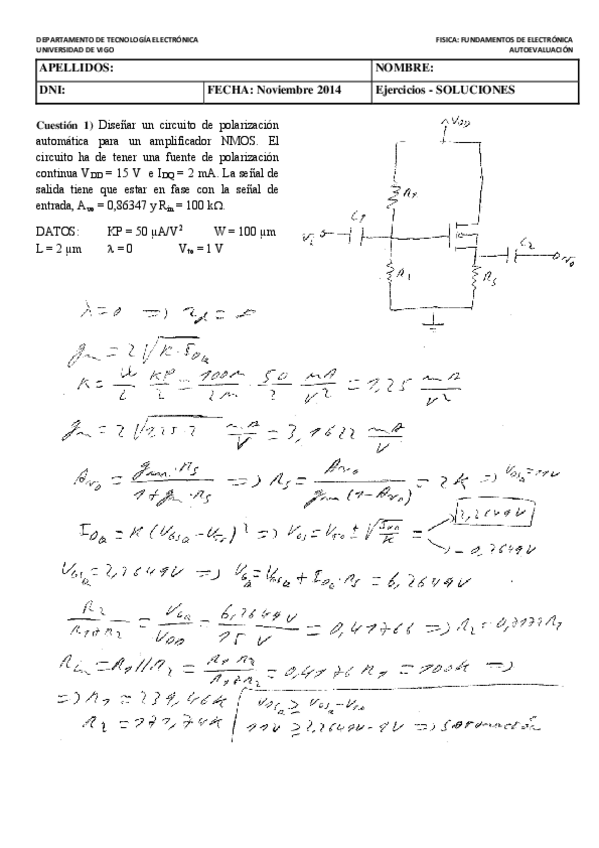 DEPARTAMENTO DE TECNOLOGÍA ELECTRÓNICA
UNIVERSIDAD DE VIGO
FISICA: FUNDAMENTOS DE ELECTRÓNICA
AUTOEVALUACIÓN
APELLIDOS: NOMBRE:
DNI: FECHA: Noviembre 2014 Ejercicios - SOLUCIONES
Cuestión 1) Diseñar un circuito de polarización
automática para un amplificador NMOS. El
circuito ha de tener una fuente de polarización
continua VDD = 15 V e IDQ = 2 mA. La señal de
salida tiene que estar en fase con la señal de
entrada, Avo = 0,86347 y Rin = 100 kΩ.
DATOS: KP = 50 µA/V² W = 100 µm
L = 2 µm λ = 0 Vto = 1 V
VDD
R1
C1
Vi
C2
Vo
RS
λ=0 => rd = ∞
gm = 2√K·IDQ
K = W/L KP/2 = 100µ/2µ · 50/2 mA/V² = 1,25 mA/V²
gm = 2√1,25·2 mA/V = 3,1622 mA/V
Avo = gm·RS/(1+gm·RS) => RS = Avo/(gm(1-Avo)) = 2K => VDSQ=11V
IDQ = K(VGSQ-VTO)² => VGS=VTO ± √(IDQ/K) = 2,2649V
-0,2649V
VGSQ=2,2649V => VGQ=VGSQ+IDQ·RS = 6,2649V
R2/(R1+R2) = VGQ/VDD = 6,2649V/15V = 0,41766 => R2=0,7172R1
Rin = R1//R2 = R1·R2/(R1+R2) = 0,4176 R1 = 100K =>
=> R1 = 239,46K
R2 = 171,74K
VDSQ ≥ VGSQ-VTO
11V ≥ 2,2649V-1V => Saturación